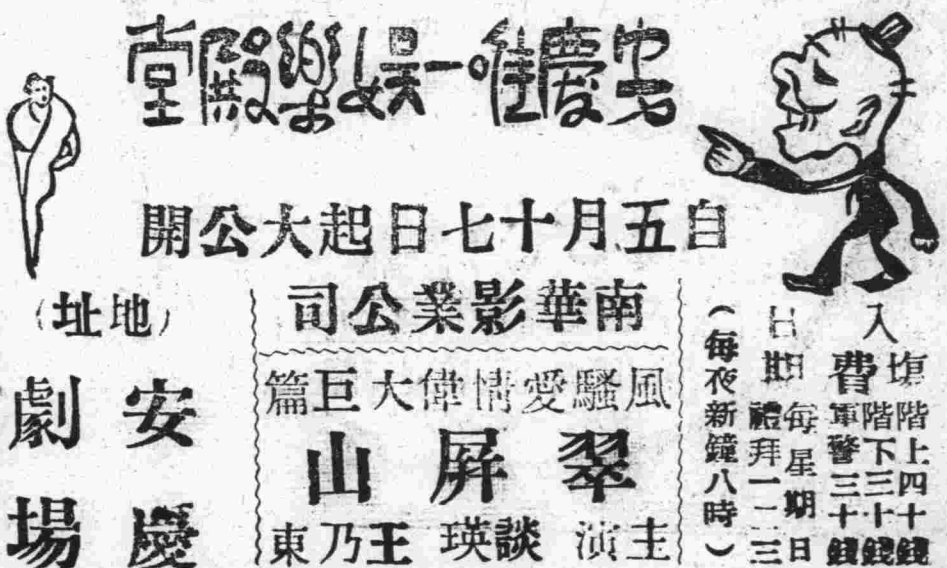 安慶唯一娛樂殿堂
自五月十七日起大公開
入塲費
階上四十錢
階下三十錢
軍警三十錢
日期
每星期日
禮拜一二三
(每夜新鐘八時)
南華影業公司
風騷愛情偉大巨篇
翠屏山
主演 談瑛 王乃東
(地址)
安慶
劇場